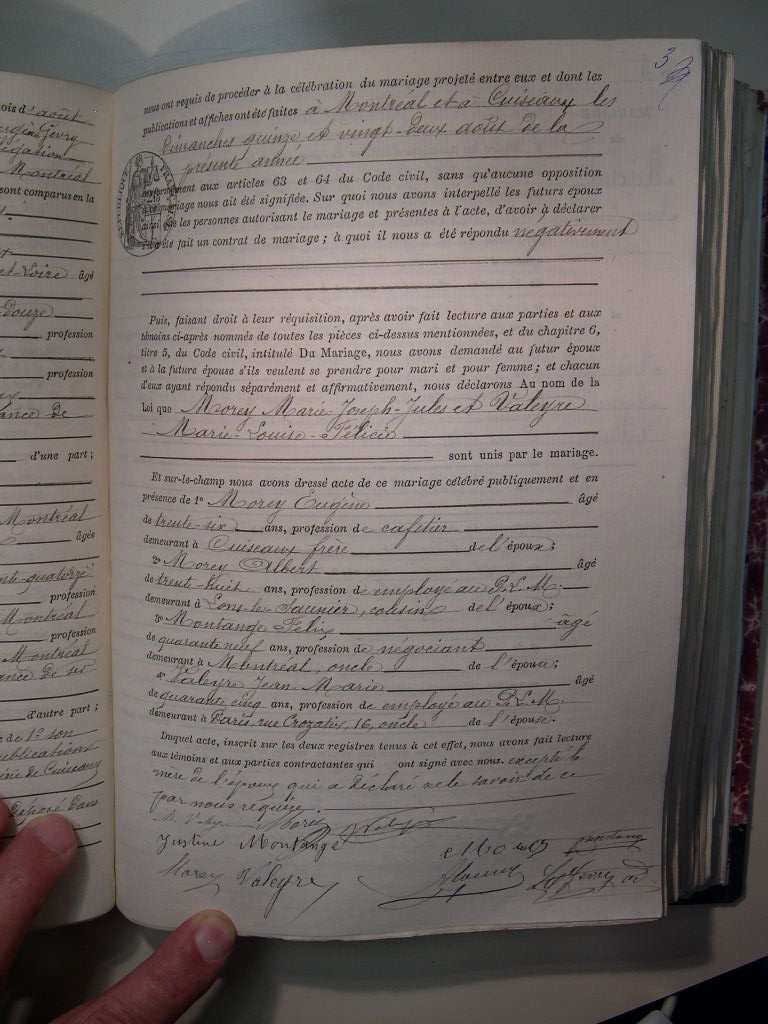 ois d'août
Montréal
sont comparus en la
et-Loire âgé
douze
profession
profession
ance de
d'une part ;
Montréal
âgés
nte-quatorze
profession
Montréal
profession
Montréal
ance de
d'autre part ;
e de 1° son
publications
rie de Cuiseaux
déposé dans
3
nous ont requis de procéder à la célébration du mariage projeté entre eux et dont les
publications et affiches ont été faites à Montréal et à Cuiseaux les
Dimanches quinze et vingt-deux août de la
présente année
conformément aux articles 63 et 64 du Code civil, sans qu'aucune opposition
mariage nous ait été signifiée. Sur quoi nous avons interpellé les futurs époux
ainsi que les personnes autorisant le mariage et présentes à l'acte, d'avoir à déclarer
été fait un contrat de mariage ; à quoi il nous a été répondu négativement
Puis, faisant droit à leur réquisition, après avoir fait lecture aux parties et aux
témoins ci-après nommés de toutes les pièces ci-dessus mentionnées, et du chapitre 6,
titre 5, du Code civil, intitulé Du Mariage, nous avons demandé au futur époux
et à la future épouse s'ils veulent se prendre pour mari et pour femme ; et chacun
d'eux ayant répondu séparément et affirmativement, nous déclarons Au nom de la
Loi que Morey Marie-Joseph-Jules et Valeyre
Marie-Louise-Félicie
sont unis par le mariage.
Et sur-le-champ nous avons dressé acte de ce mariage célébré publiquement et en
présence de 1° Morey Eugène âgé
de trente-six ans, profession de cafetier
demeurant à Cuiseaux frère de l'époux ;
2° Morey Albert âgé
de trente-huit ans, profession de employé au P. L. M.
demeurant à Lons-le-Saunier, cousin de l'époux ;
3° Montange Félix âgé
de quarante neuf ans, profession de négociant
demeurant à Montréal, oncle de l'épouse ;
4° Valeyre Jean Marie âgé
de quarante cinq ans, profession de employé au P. L. M.
demeurant à Paris, rue Crozatier, 16, oncle de l'épouse.
Duquel acte, inscrit sur les deux registres tenus à cet effet, nous avons fait lecture
aux témoins et aux parties contractantes qui ont signé avec nous. excepté la
mère de l'époux qui a déclaré ne le savoir de ce
par nous requise.
Morey Valeyre
Justine Montange
Morey Valeyre